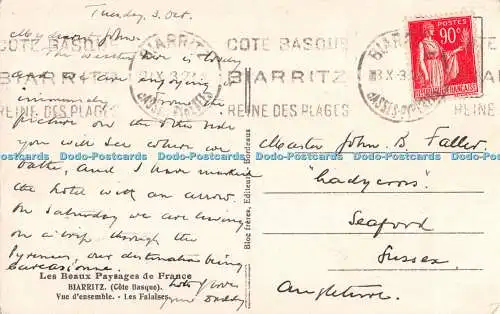 Tuesday, 3. Oct.
My dear John.
The weather here is lovely
and I am enjoying it
immensely. From the
picture on the other side
you will see where we
bathe, and I have marked
the hotel with an arrow.
On Saturday we are leaving
on a trip through the
Pyrenees, our destination being
Carcassonne.
Lots of love
your Daddy
Les Beaux Paysages de France
BIARRITZ. (Côte Basque).
Vue d'ensemble. - Les Falaises.
Bloc frères, Editeurs, Bordeaux
COTE BASQUE
BIARRITZ
REINE DES PLAGES
BIARRITZ
BASSES-PYRENEES
COTE BASQUE
BIARRITZ
REINE DES PLAGES
BIARRITZ
BASSES-PYRENEES
POSTES
90c
Master John B. Faller
"Ladycross"
Seaford
Sussex
Angleterre.
Dodo-Postcards Dodo-Postcards Dodo-Postcards Dodo-Postcards Dodo-Postcards